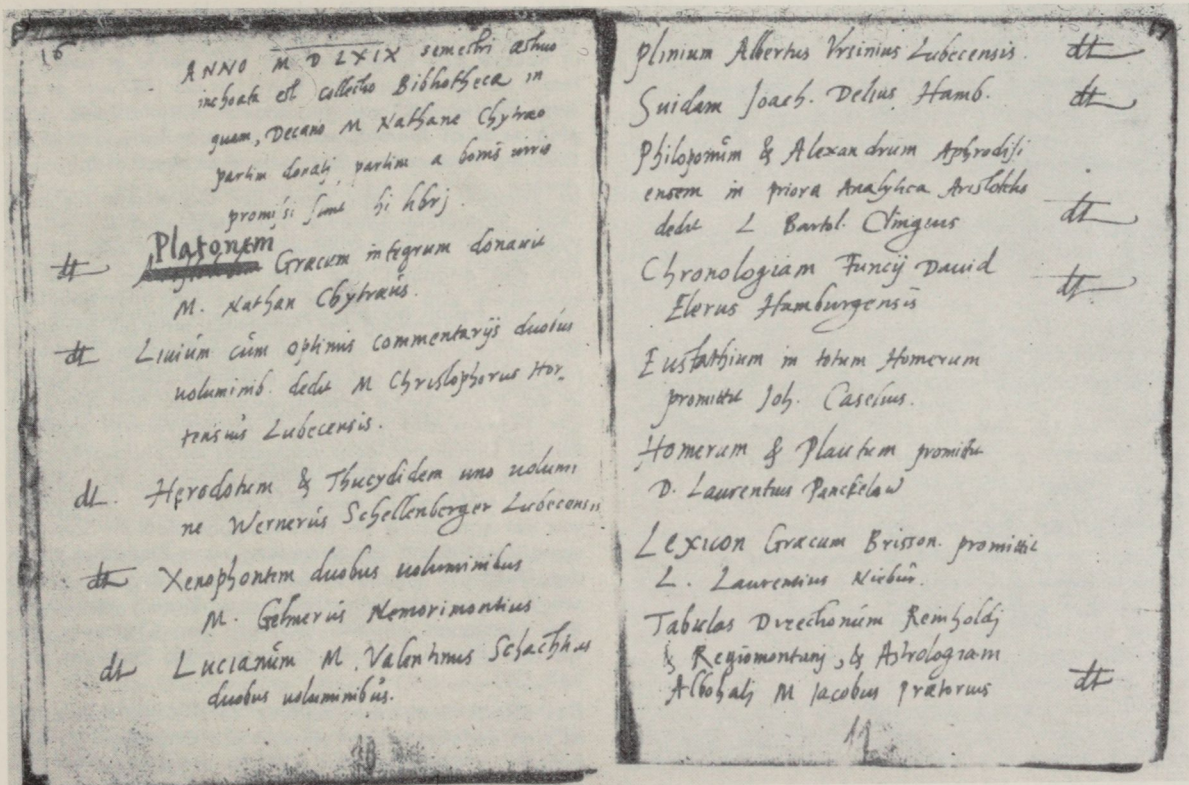 16
ANNO M D LXIX semestri æstiuo
inchoata est collectio Bibliothecæ in
quam, Decano M Nathane Chytræo
partim donatj, partim a bonis uiris
promissi sunt hi librj.
dt Platonem
Græcum integrum donauit
M. Nathan Chytræus.
dt Liuium cum optimis commentarijs duobus
uoluminib. dedit M Christophorus Hor-
tensius Lubecensis.
dt. Herodotum & Thucydidem uno uolumi
ne Wernerus Schellenberger Lubecensis
dt Xenophontem duobus uoluminibus
M. Gelmerus Nemorimontius
dt Lucianum M. Valentinus Schachtius
duobus uoluminibus.
10
17
Plinium Albertus Vrsinius Lubecensis. dt
Suidam Joach. Delius Hamb. dt
Philoponum & Alexandrum Aphrodisi
ensem in priora Analytica Aristotelis
dedit L Bartol. Clingius dt
Chronologiam Funcij Dauid dt
Elerus Hamburgensis
Eustathium in totum Homerum
promittit Joh. Caselius.
Homerum & Plautum promittit
D. Laurentius Panckelow
Lexicon Græcum Brisson. promittit
L. Laurentius Niebur.
Tabulas Directionum Reinholdj
& Regiomontanj, & Astrologiam
Albohalj M Jacobus Prætorius dt
11